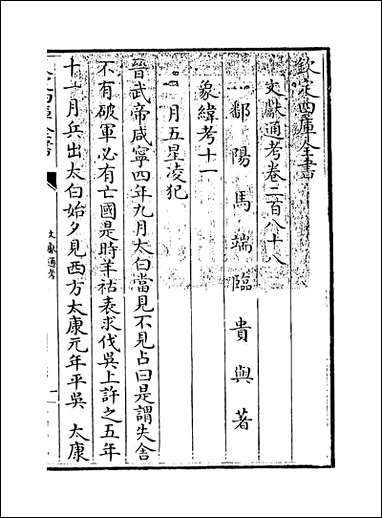 欽定四庫全書
文獻通考卷二百八十八
鄱陽馬端臨貴與著
象緯考十一
月五星凌犯
晉武帝咸寧四年九月太白當見不見占曰是謂失舍
不有破軍必有亡國是時羊祜表求伐吳上許之五年
十一月兵出太白始夕見西方太康元年平吳 太康
文獻通考